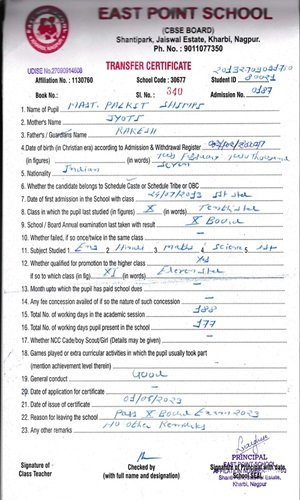 EAST POINT SCHOOL
(CBSE BOARD)
Shantipark, Jaiswal Estate, Kharbi, Nagpur.
Ph. No. : 9011077350
UDISE No.27090914608
TRANSFER CERTIFICATE
Affiliation No. : 1130760 School Code : 30677 Student ID
Book No.: Sl. No.: 340 Admission No. 0187
1. Name of Pupil MAST.
2. Mother's Name JYOTI
3. Fathers / Guardians Name RAKESH
4. Date of birth (in Christian era) according to Admission & Withdrawal Register
(in figures) (in words) February Two thousand
Seven
5. Nationality Indian
6. Whether the candidate belongs to Schedule Caste or Schedule Tribe or OBC
7. Date of first admission in the School with class 1st std
8. Class in which the pupil last studied (in figures) X (in words) Tenth std
9. School / Board Annual examination last taken with result X Board
10. Whether failed, if so once/twice in the same class —
11. Subject Studied 1. Eng 2. Hindi 3. Maths 4. Science 5. SST
12. Whether qualified for promotion to the higher class Yes
if so to which class (in fig) XI (in words) Eleven std
13. Month upto which the pupil has paid school dues —
14. Any fee concession availed of if so the nature of such concession —
15. Total No. of working days in the academic session 188
16. Total No. of working days pupil present in the school 177
17. Whether NCC Cade/boy Scout/Girl (Details may be given) —
18. Games played or extra curricular activities in which the pupil usually took part
(mention achievement level therein)
19. General conduct Good
20. Date of application for certificate —
21. Date of issue of certificate
22. Reason for leaving the school Pass X Board Exam 2023
23. Any other remarks No other Remarks
Signature of
Class Teacher
Checked by
(with full name and designation)
PRINCIPAL
Signature of Principal with date,
School SEAL
Kharbi, Nagpur